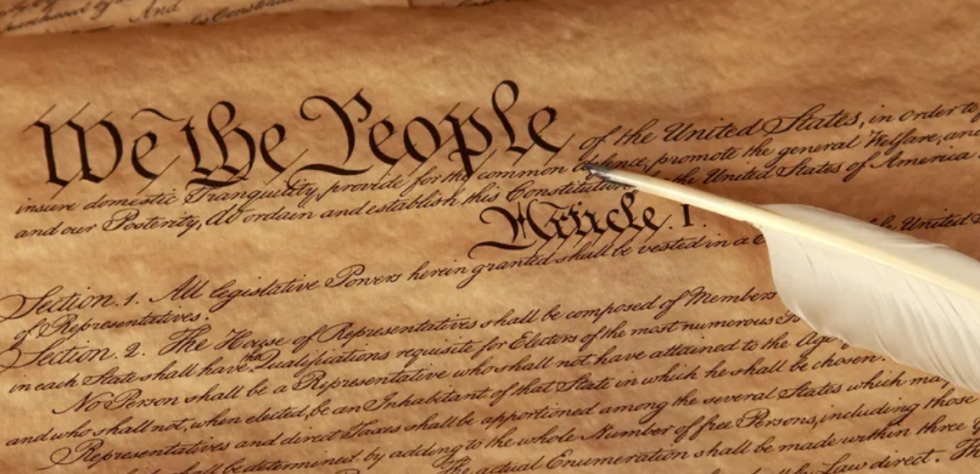 And
We the People of the United States, in order to
insure domestic Tranquility, provide for the common defence, promote the general Welfare, and
and our Posterity, do ordain and establish this Constitution the United States of America
Article I.
Section. 1. All legislative Powers herein granted shall be vested in a C the United
of Representatives.
Section. 2. The House of Representatives shall be composed of Members
in each State shall have the Qualifications requisite for Electors of the most numerous
No Person shall be a Representative who shall not have attained to the Age
and who shall not, when elected, be an Inhabitant of that State in which he shall be chosen.
Representatives and direct Taxes shall be apportioned among the several States which may
shall be determined by adding to the whole Number of free Persons, including those
The actual Enumeration shall be made within three
Law direct.